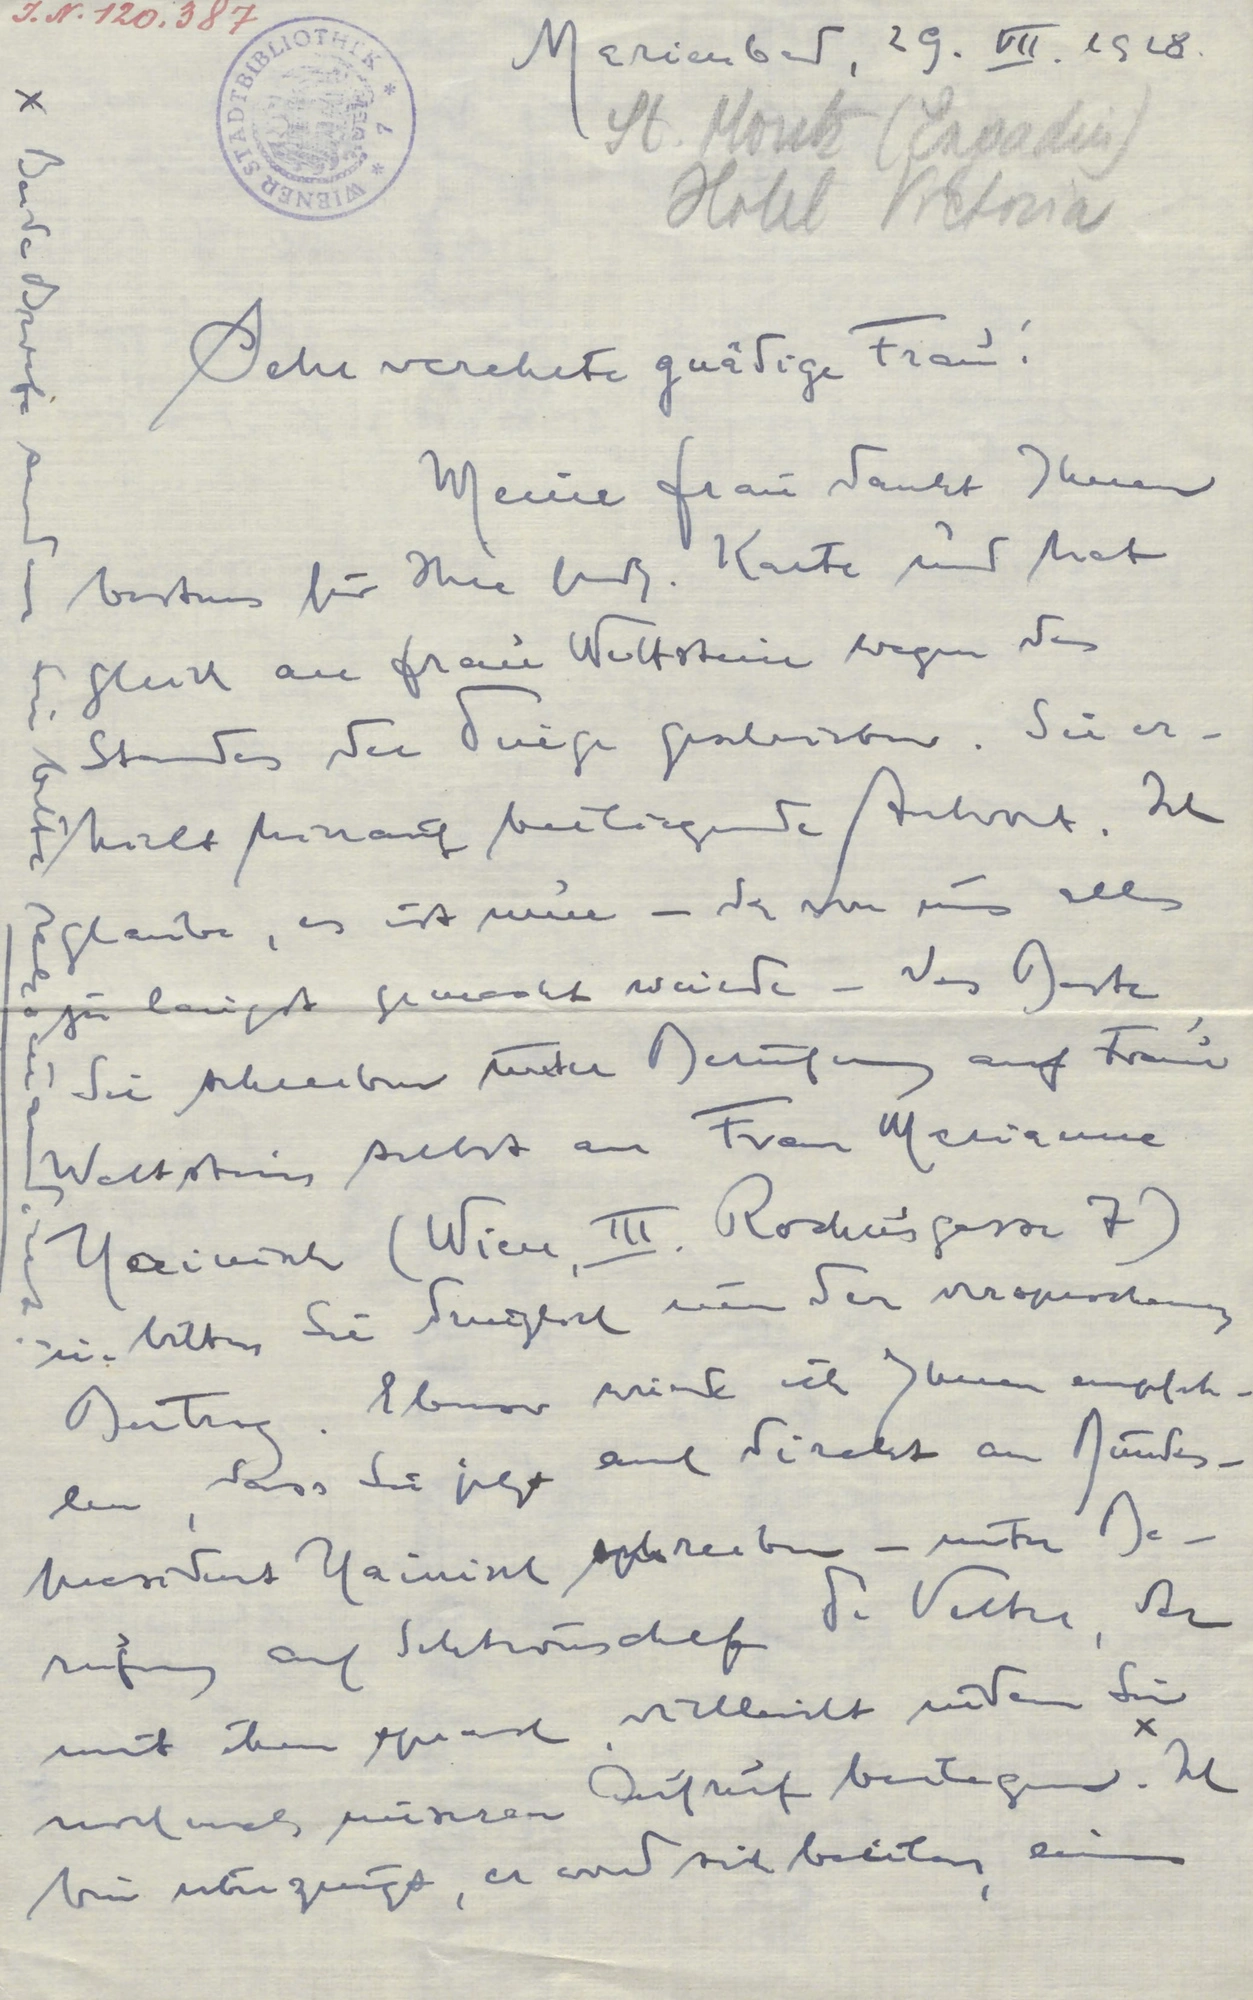 J.N. 120.387
WIENER STADTBIBLIOTHEK * 7 *
Marienbad, 29. VII. 1928.
St. Moritz (Engadin)
Hotel Victoria
Sehr verehrte gnädige Frau!
Meine Frau dankt Ihnen
bestens für Ihre frdl. Karte und hat
gleich an Frau Wettstein wegen des
Standes der Dinge geschrieben. Sie er-
hielt hierauf beiliegende Antwort. Ich
glaube, es ist nun – da von uns alles
zu längst gemacht wurde – das Beste
Sie schreiben unter Berufung auf Frau
Wettstein selbst an Frau Marianne
Hainisch (Wien, III. Rochusgasse 7)
u. bitten Sie dringlich um den versprochenen
Beitrag. Ebenso würde ich Ihnen empfeh-
len, dass Sie jetzt auch direkt an Bundes-
präsident Hainisch schreiben – unter Be-
rufung auf Sektionschef Di Veltze, der
mit ihm sprach, vielleicht indem Sie
nochmals unseren Aufruf beilegen. x Ich
bin überzeugt, er wird sich beeilen, einen
x Beide Briefe senden Sie bitte rekommandiert!